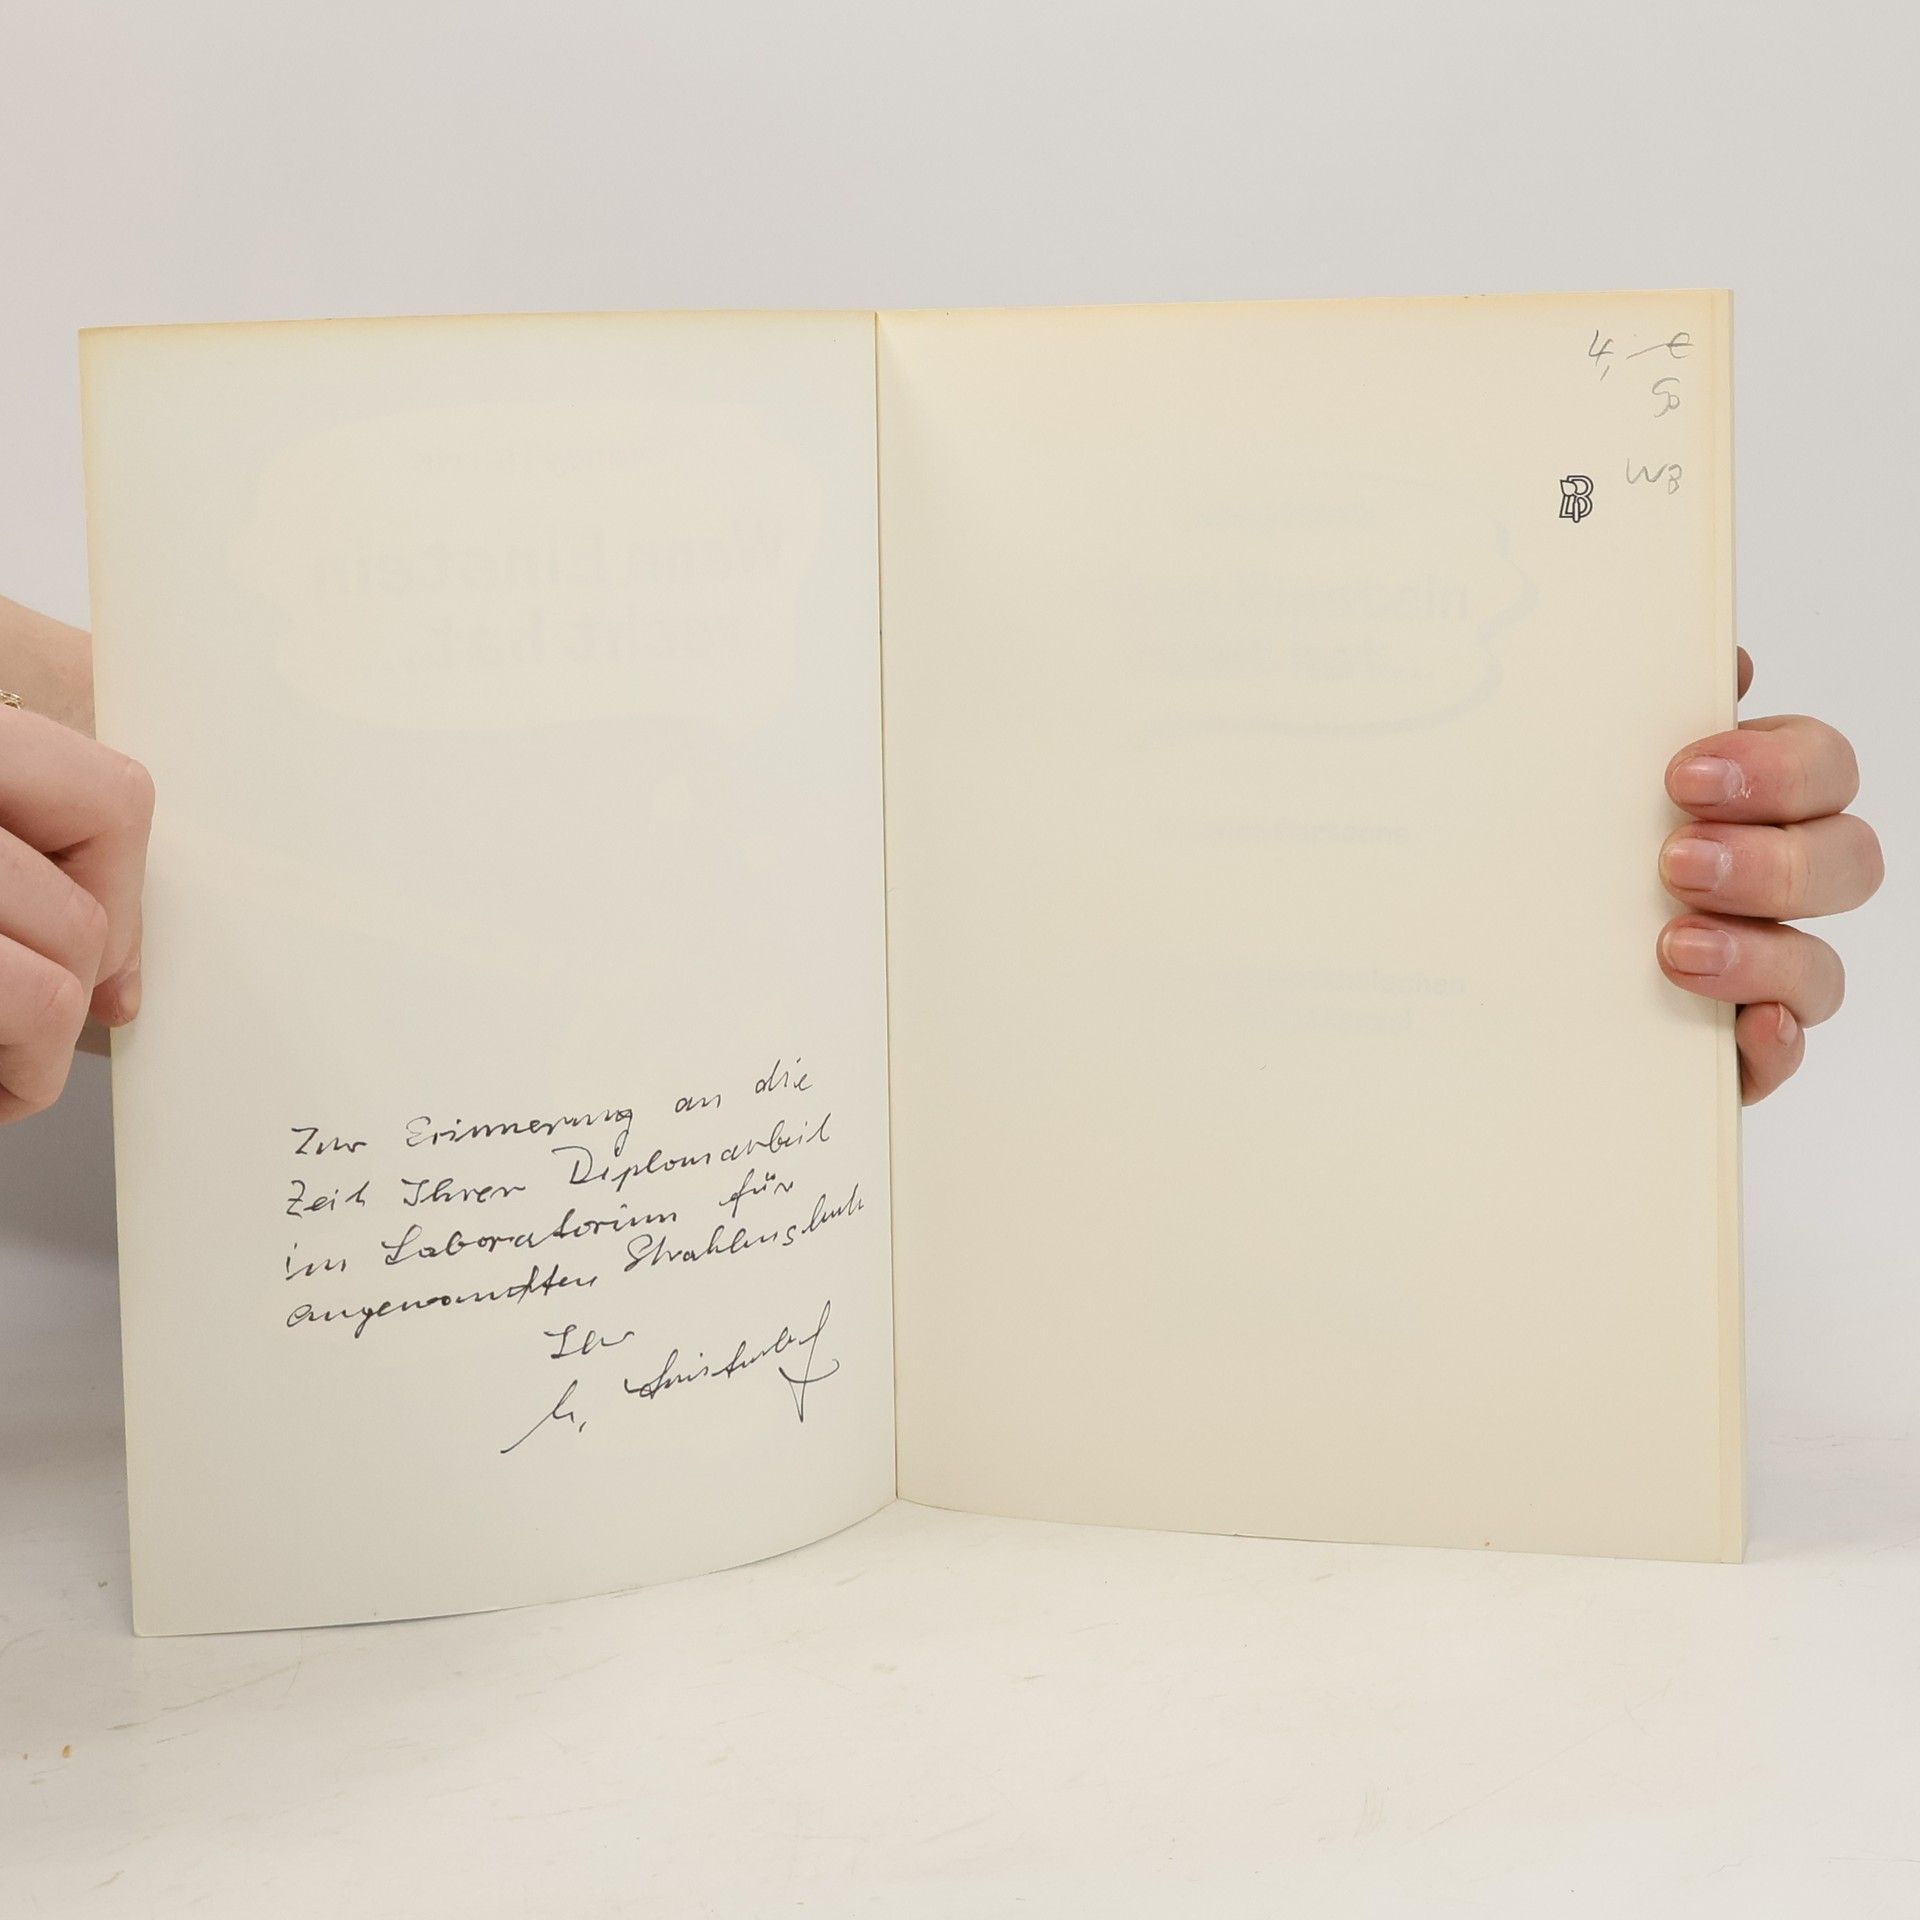 Zur Erinnerung an die
Zeit Ihrer Diplomarbeit
im Laboratorium für
angewandten Strahlenschutz
Ihr
4,-€
So
WB